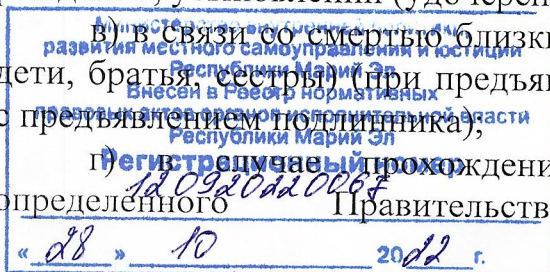 в) в связи со смертью близки
дети, братья, сестры) (при предъя
с предъявлением подлинника);
г) в случае прохождени
определенного Правительств
Министерство внутренней политики,
развития местного самоуправления и юстиции
Республики Марий Эл
Внесен в Реестр нормативных
правовых актов органов исполнительной власти
Республики Марий Эл
Регистрационный номер
120920220067
« 28 » 10 2022 г.